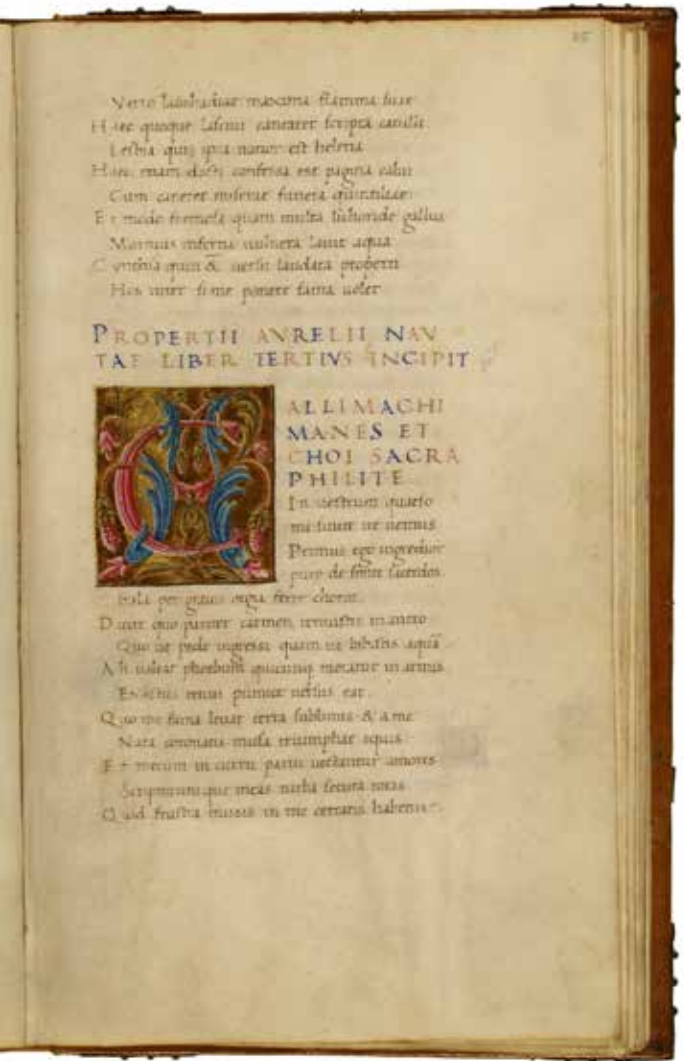 Varro maxima flamma suae
Haec quoque lasciui scripta catulli
Lesbia quis ipsa notior est helena
Haec etiam docti confessa est pagina calui
Cum caneret miserae funera quintiliae
Et modo formosa quam multa gallus
Mortuus inferna uulnera lauit aqua
Cynthia quin & uersu laudata properti
Hos inter si me ponere fama uolet
PROPERTII AVRELII NAV
TAE LIBER TERTIVS INCIPIT
CALLIMACHI
MANES ET
CHOI SACRA
PHILITE
In uestrum quaeso
me sinite ire nemus
Primus ego ingredior
puro de fonte sacerdos
Itala per graios orgia ferre choros
Dicite quo pariter carmen tenuastis in antro
Quo ue pede ingressi quam ue bibistis aquã
Ah ualeat phoebum quicunq moratur in armis
Exactus tenui pumice uersus eat
Quo me fama leuat terra sublimis & a me
Nata coronatis musa triumphat equis
Et mecum in curru parui uectantur amores
Scriptorumque meas turba secuta rotas
Quid frustra missis in me certatis habenis